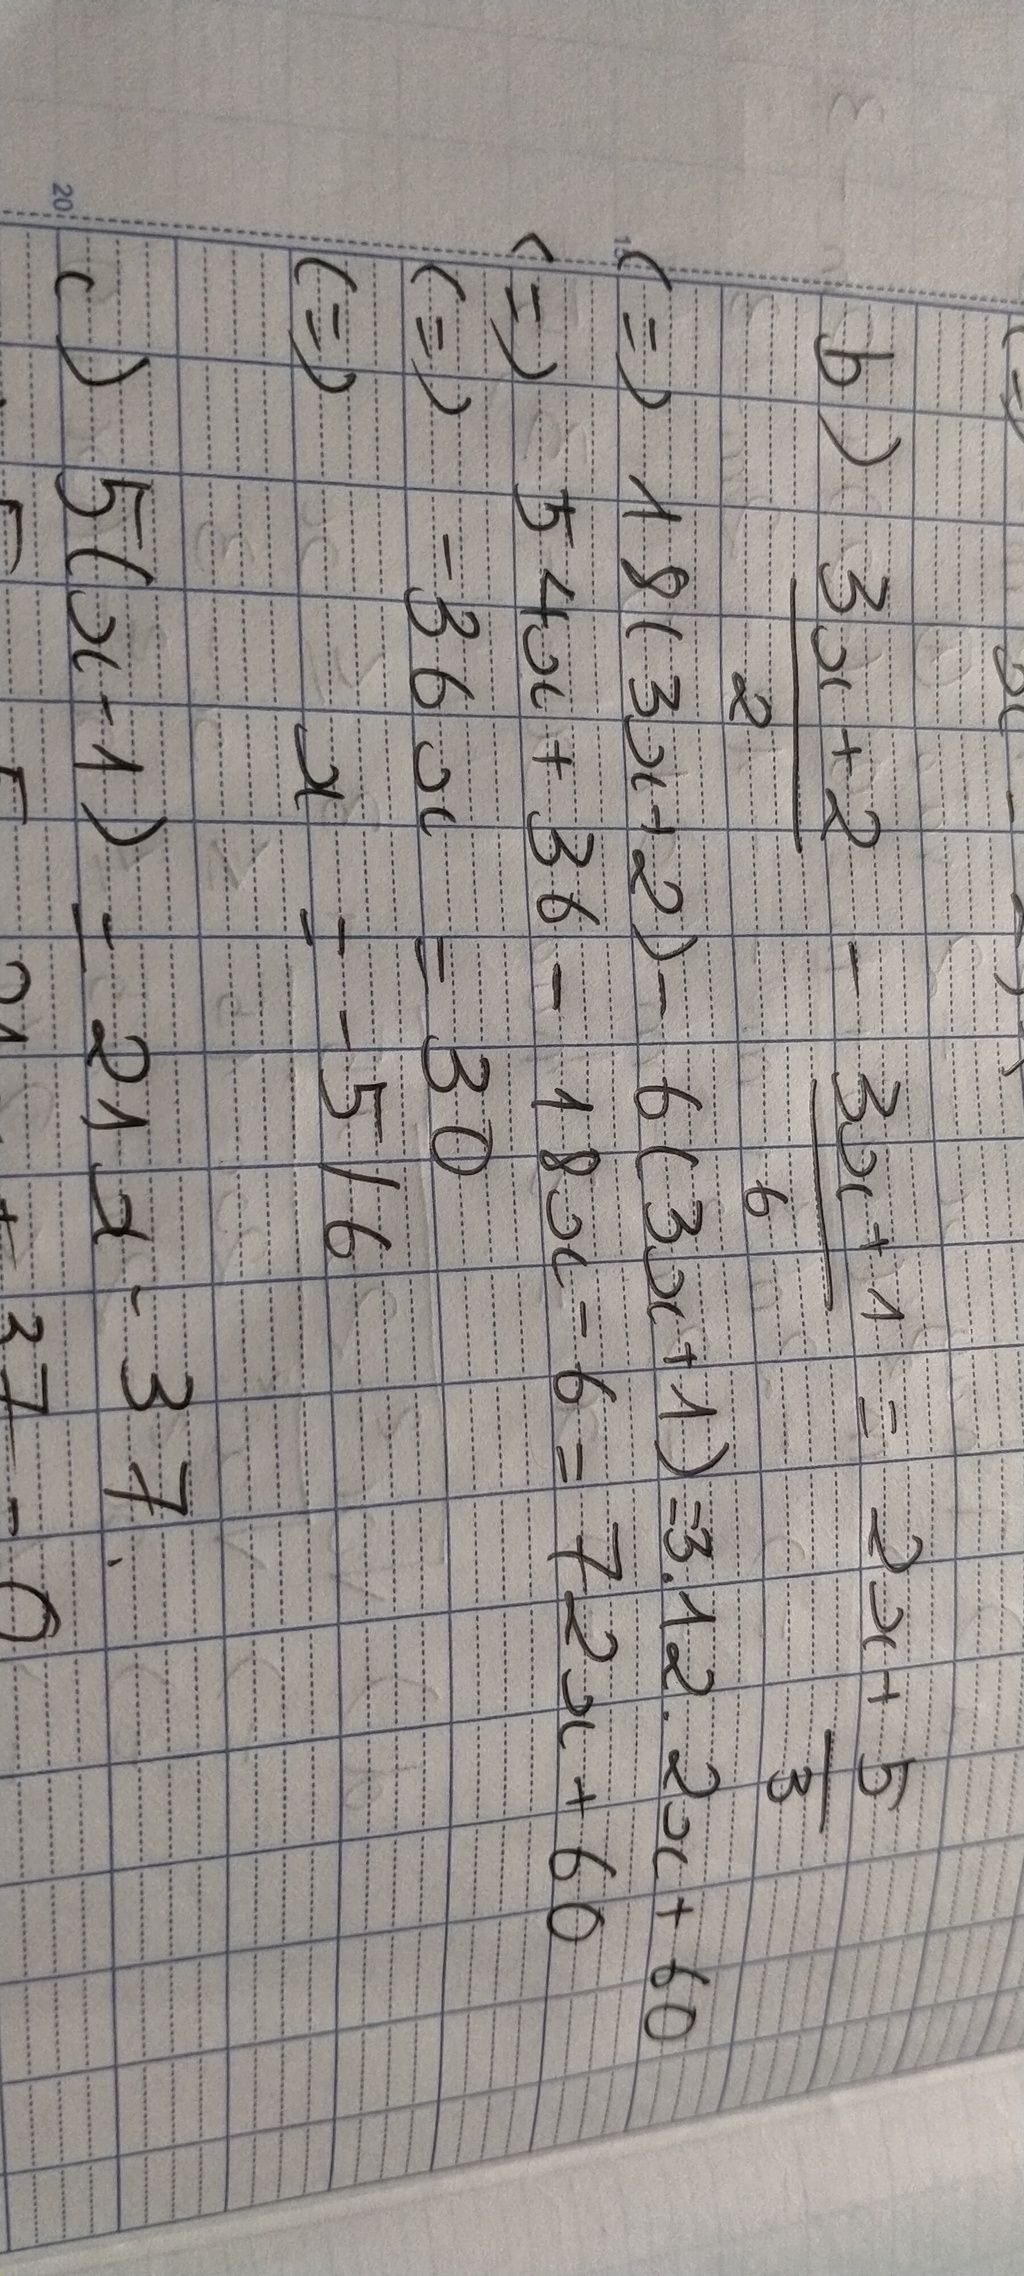 b) 3x+2/2 - 3x+1/6 = 2x + 5/3
(=) 18(3x+2) - 6(3x+1) = 3.12.2x + 60
(=) 54x + 36 - 18x - 6 = 72x + 60
(=) -36x = 30
(=) x = -5/6
c) 5(x-1) = 21x - 37.